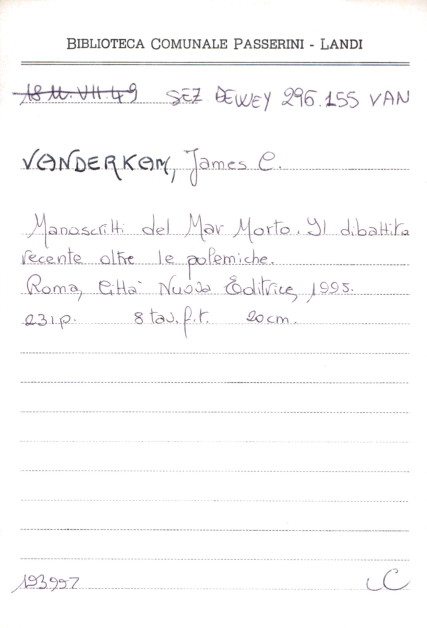 BIBLIOTECA COMUNALE PASSERINI - LANDI
18 M. VII 49 SEZ DEWEY 296.155 VAN
VANDERKAM, James C.
Manoscritti del Mar Morto. Il dibattito
recente oltre le polemiche.
Roma, Città Nuova Editrice, 1995.
231p. 8 tav. f.t. 20cm.
193997 LC